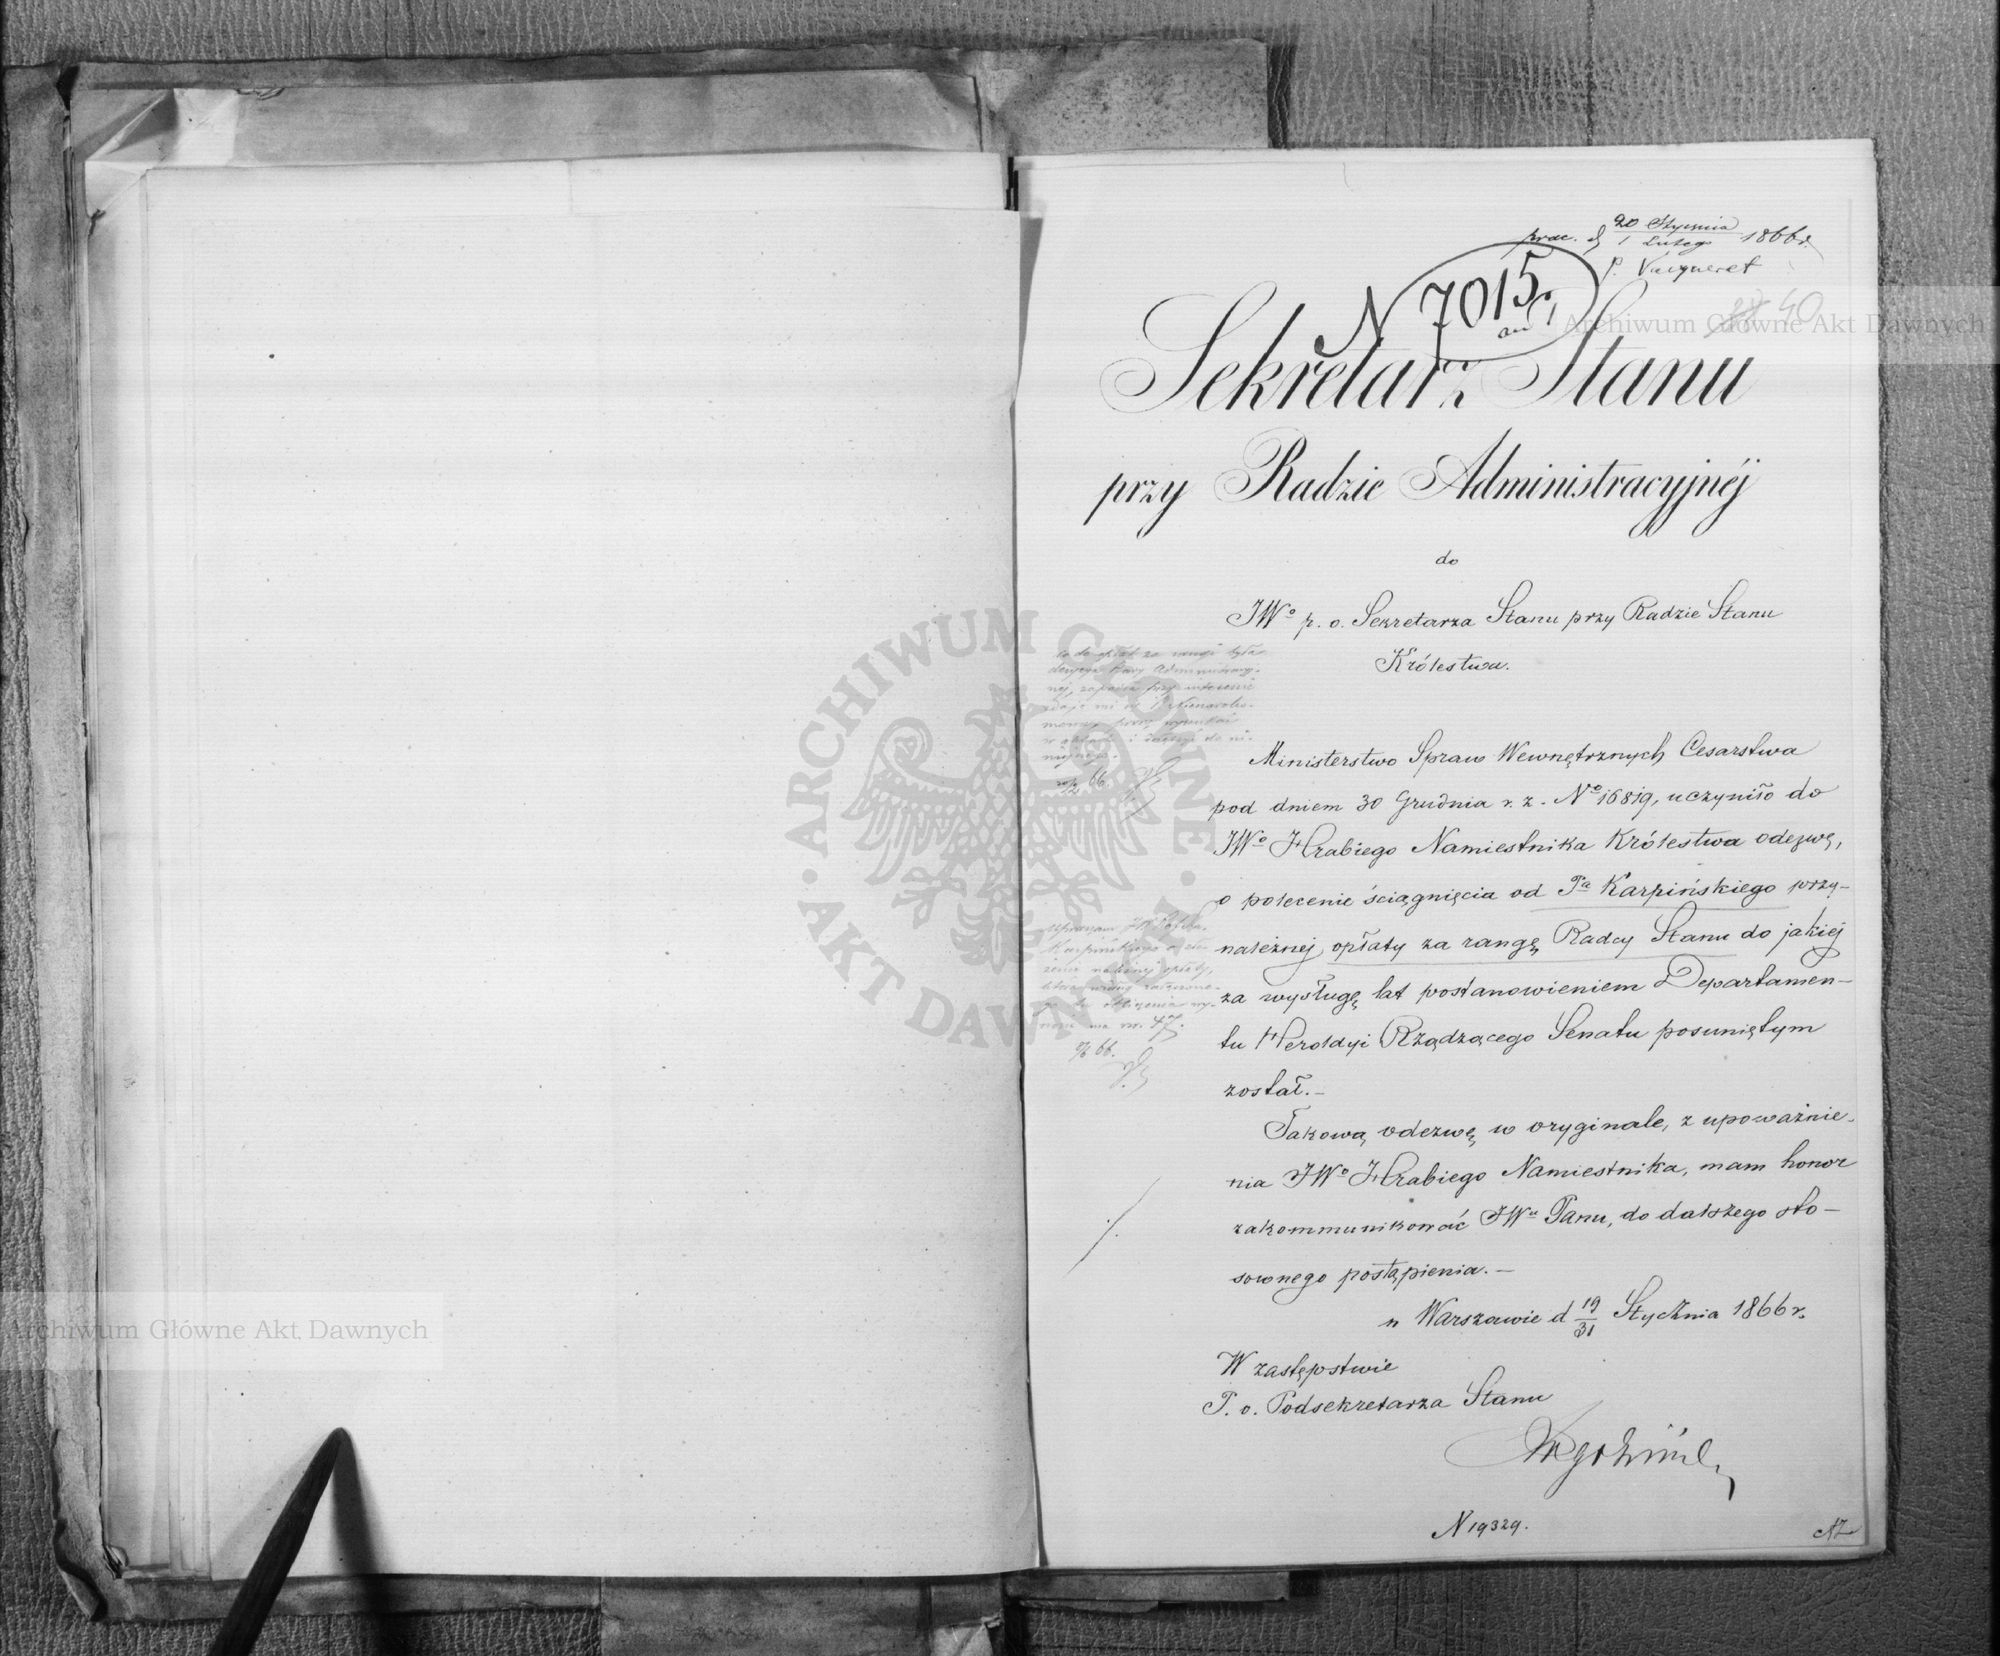 prae. d. 20 Stycznia / 1 Lutego 1866 r.
P. Vacqueret
N 7015
40
Sekretarz Stanu
przy Radzie Administracyjnéj
do
JWo p. o. Sekretarza Stanu przy Radzie Stanu
Królestwa.
Ministerstwo Spraw Wewnętrznych Cesarstwa
pod dniem 30 Grudnia r. z. No 16819, uczyniło do
JWo Hrabiego Namiestnika Królestwa odezwę,
o polecenie ściągnięcia od Pa Karpińskiego przy-
należnej opłaty za rangę Radcy Stanu do jakiej
za wysługę lat postanowieniem Departamen-
tu Heroldyi Rządzącego Senatu posuniętym
został.-
Takową odezwę w oryginale, z upoważnie-
nia JWo Hrabiego Namiestnika, mam honor
zakommunikować JWu Panu, do dalszego sto-
sownego postąpienia.-
w Warszawie d 19/31 Stycznia 1866 r.
W zastępstwie
P. o. Podsekretarza Stanu
N 19329.
co do opłat za rangi była
decyzya Rady Administracyj-
nej,
66
Upraszam JW
Karpińskiego o
należnej opłaty,
66.
Archiwum Główne Akt Dawnych
Archiwum Główne Akt Dawnych
ARCHIWUM GŁÓWNE · AKT DAWNYCH ·